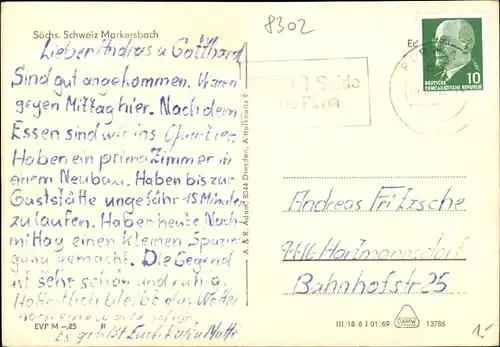 Sächs. Schweiz Markersbach
8302
Lieber Andreas u Gotthard
Sind gut angekommen. Waren
gegen Mittag hier. Nach dem
Essen sind wir ins Quartier.
Haben ein prima Zimmer in
einem Neubau. Haben bis zur
Gaststätte ungefähr 15 Minuten
zu laufen. Haben heute Nach-
mittag einen kleinen Spazier
gang gemacht. Die Gegend
ist sehr schön und ruhig.
Hoffentlich bleibt das Wetter
noch eine
Es grüßt Euch Vati u Mutti
EVP M –,25
A. & R. Adam, 8044 Dresden, Altolkewitz 9
Seide
Pirna
DEUTSCHE
DEMOKRATISCHE REPUBLIK
10
Andreas Fritzsche
9116 Hartmannsdorf
Bahnhofstr 25
III/18/6 J 01/69
DAMW
13786
1,-